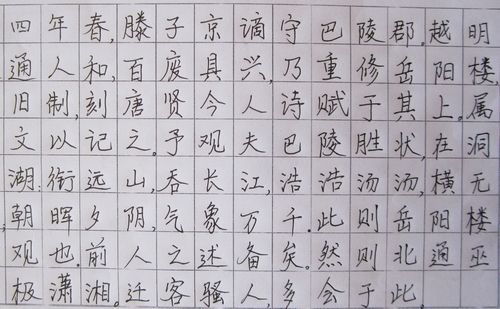 四年春,滕子京谪守巴陵郡。越明
通人和,百废具兴,乃重修岳阳楼,
旧制,刻唐贤今人诗赋于其上。属
文以记之。予观夫巴陵胜状,在洞
湖。衔远山,吞长江,浩浩汤汤,横无
,朝晖夕阴,气象万千。此则岳阳楼
观也。前人之述备矣。然则北通巫
极潇湘。迁客骚人,多会于此。